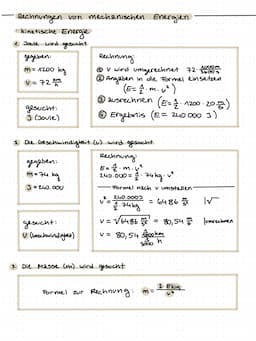 Rechnungen von mechanischen Energien
kinetische Energie
1. Joule wird gesucht
gegeben:
m = 1200 kg
v = 72 km/h
gesucht:
J (Joule)
Rechnung:
① v wird umgerechnet 72
② Angaben in die Formel einsetzen
(E = 1/2 · m · v²)
③ ausrechnen (E = 1/2 · 1200 · 20
④ Ergebnis (E = 240 000 J)
2. Die Geschwindigkeit (v) wird gesucht
gegeben:
m = 74 kg
J = 240.000
gesucht:
v (Geschwindigkeit)
Rechnung:
E = 1/2 · m · v²
240.000 = 1/2 · 74 kg · v²
Formel nach v umstellen
v² = 240.000J / 1/2 · 74kg = 6486 | √
v = √6486 = 80,54 m/s | umrechnen
v = 80,54
3. Die Masse (m) wird gesucht
Formel zur Rechnung: m = 2·Ekin / v²